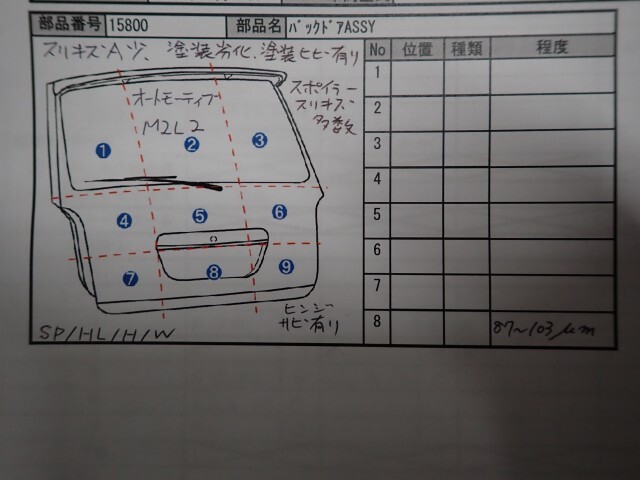 部品番号 15800 部品名 ﾊﾞｯｸﾄﾞｱASSY
スリキズAツ、塗装劣化、塗装ヒビ有り
オートモーティブ
M2L2
スポイラー
スリキズ
多数
1 2 3
4 5 6
7 8 9
ヒンジ
サビ有り
SP/HL/H/W
No 位置 種類 程度
1
2
3
4
5
6
7
8 87~103μm